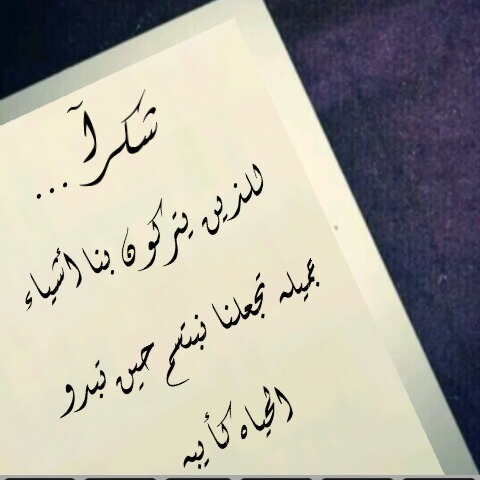 شكرآ...
للذين يتركون بنا اشياء
جميله تجعلنا نبتسم حين تبدو
الحياه كأيبه